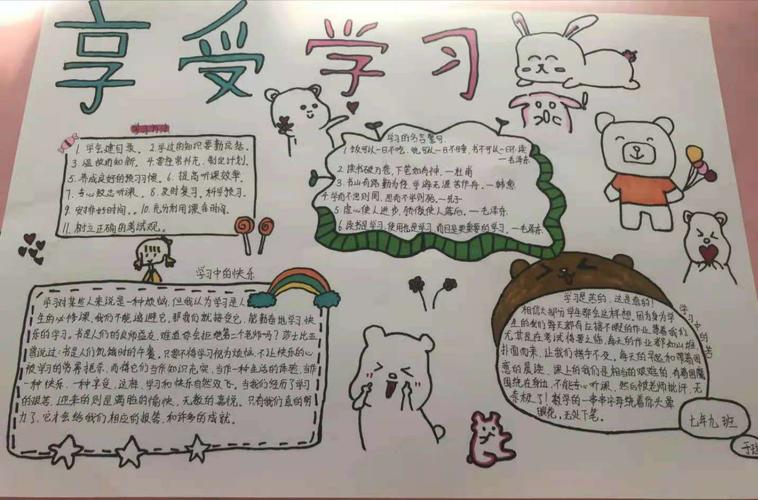 享受学习
学习方法
1. 学会建目录、2. 学过的知识要勤总结.
3. 温故而知新、4. 要经常补充、制定计划.
5. 养成良好的预习惯、6. 提高听课效率.
7. 专心致志听课、8. 及时复习、科学预习.
9. 安排好时间。、10. 充分利用课台时间.
11. 树立正确的考试观。
学习的名言警句
1. 饭可以一日不吃、觉可以一日不睡、书不可以一日不读
—毛泽东
2. 读书破万卷,下笔如有神. —杜甫
3. 书山有路勤为径 学海无涯苦作舟. —韩愈
4. 学而不思则罔、思而不学则殆。—孔子
5. 虚心使人进步、骄傲使人落后。—毛泽东
6. 读书是学习、使用也是学习、而且是更重要的学习。—毛泽东
学习中的快乐
学习对某些人来说是一种烦恼,但我认为学习是人
生的必修课,我们不能逃避它,那我们就接受它,能勤奋地学习,快
乐的学习。书是人们的良师益友,难道你会拒绝第二个老师吗?莎士比亚
说过:书是人们饥饿时的午餐,只要不将学习视为烦恼,不让快乐的心
被学习的
当作知识充实,当作一种生活的体验,当作
一种快乐、一种享受,这样,学习和快乐自然双飞。当我们经历了学习
的艰苦,迎来的则是满脸的愉快,无数的喜悦。只有我们真的努
力了,它才会给我们相应的报答和许多的成就。
学习中的苦
学习是苦的、这是真的!
相信大部分学生都会这样想,因为身为学
生的我们每天都有
的作业等着我们
无常且在考试
每天的作业都如山般
扑面而来,让我们措手不及、每天的早起和带着困
意的晨读,课上的我们是相当的艰难的,有着困魔
围绕在身边,不能专心听课,然后被老师批评,无
奈极了!数学的一串串字母绕着你头晕
眼花,无处下笔。
七年九班